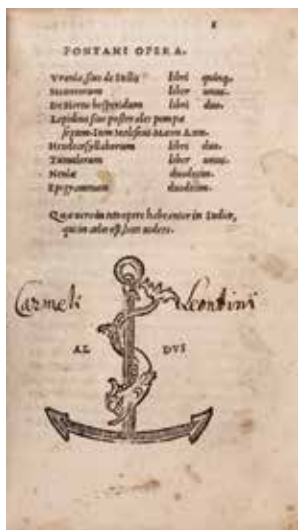 PONTANI OPERA.
Vrania, siue de Stellis libri quinq.
Meteororum liber unus.
De Hortis hesperidum libri duo.
Lepidina siue postorales pompæ
septem. Item Meliseus Mæon Acon.
Hendecasyllaborum libri duo.
Tumulorum liber unus.
Neniæ duodecim.
Epigrammata duodecim.
Quæ uero in toto opere habeantur in Indice,
qui in calce est, licet uidere.
Carmeli Leontini
AL DVS